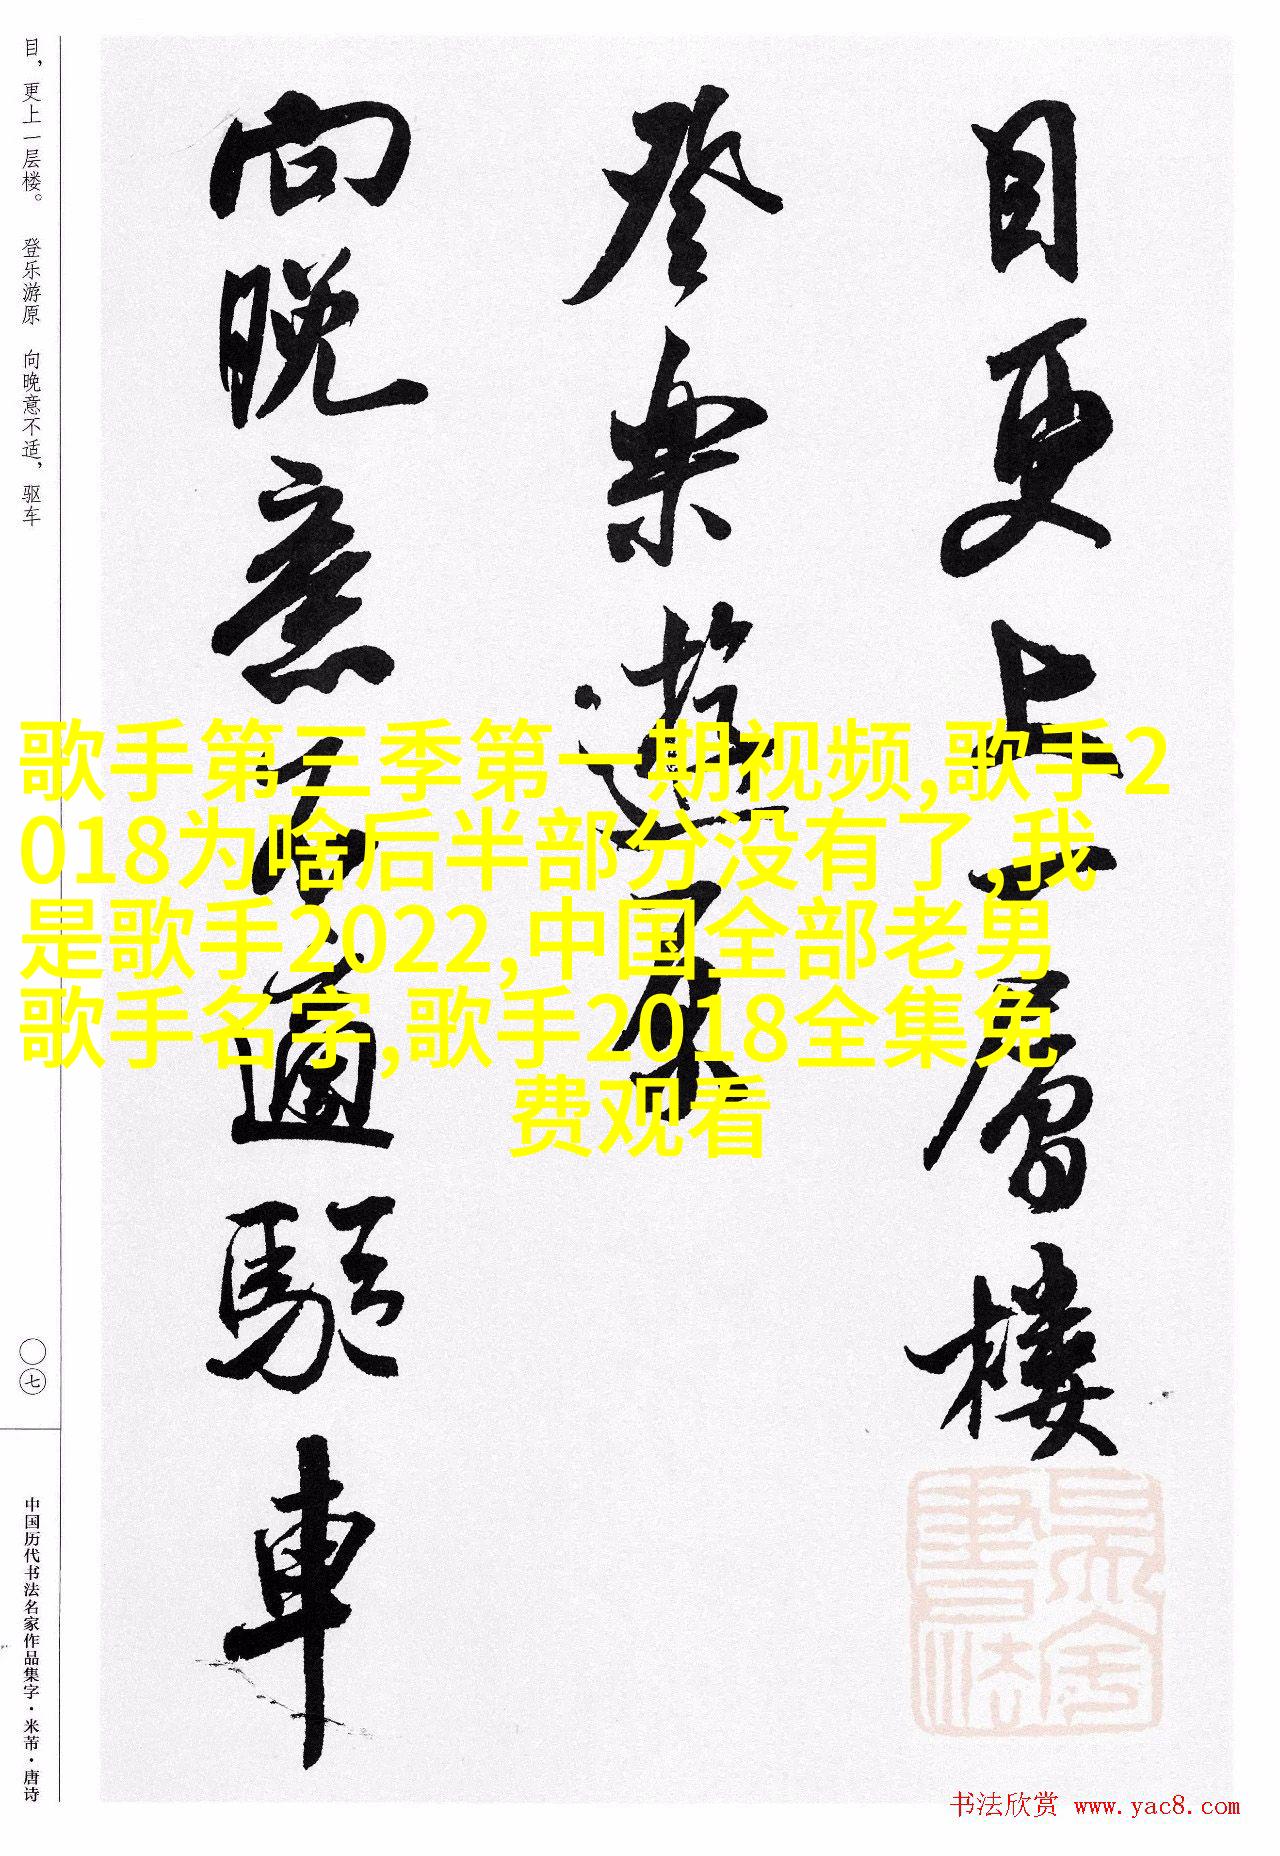 目更上一层楼
登乐游原
向晚意不适驱车
目，更上一层楼。 登乐游原 向晚意不适，驱车
〇七
中国历代书法名家作品集字·米芾·唐诗
歌手第三季第一期视频,歌手2
018为啥后半部分没有了,我
是歌手2022,中国全部老男
歌手名字,歌手2018全集免
费观看
书法欣赏 www.yac8.com